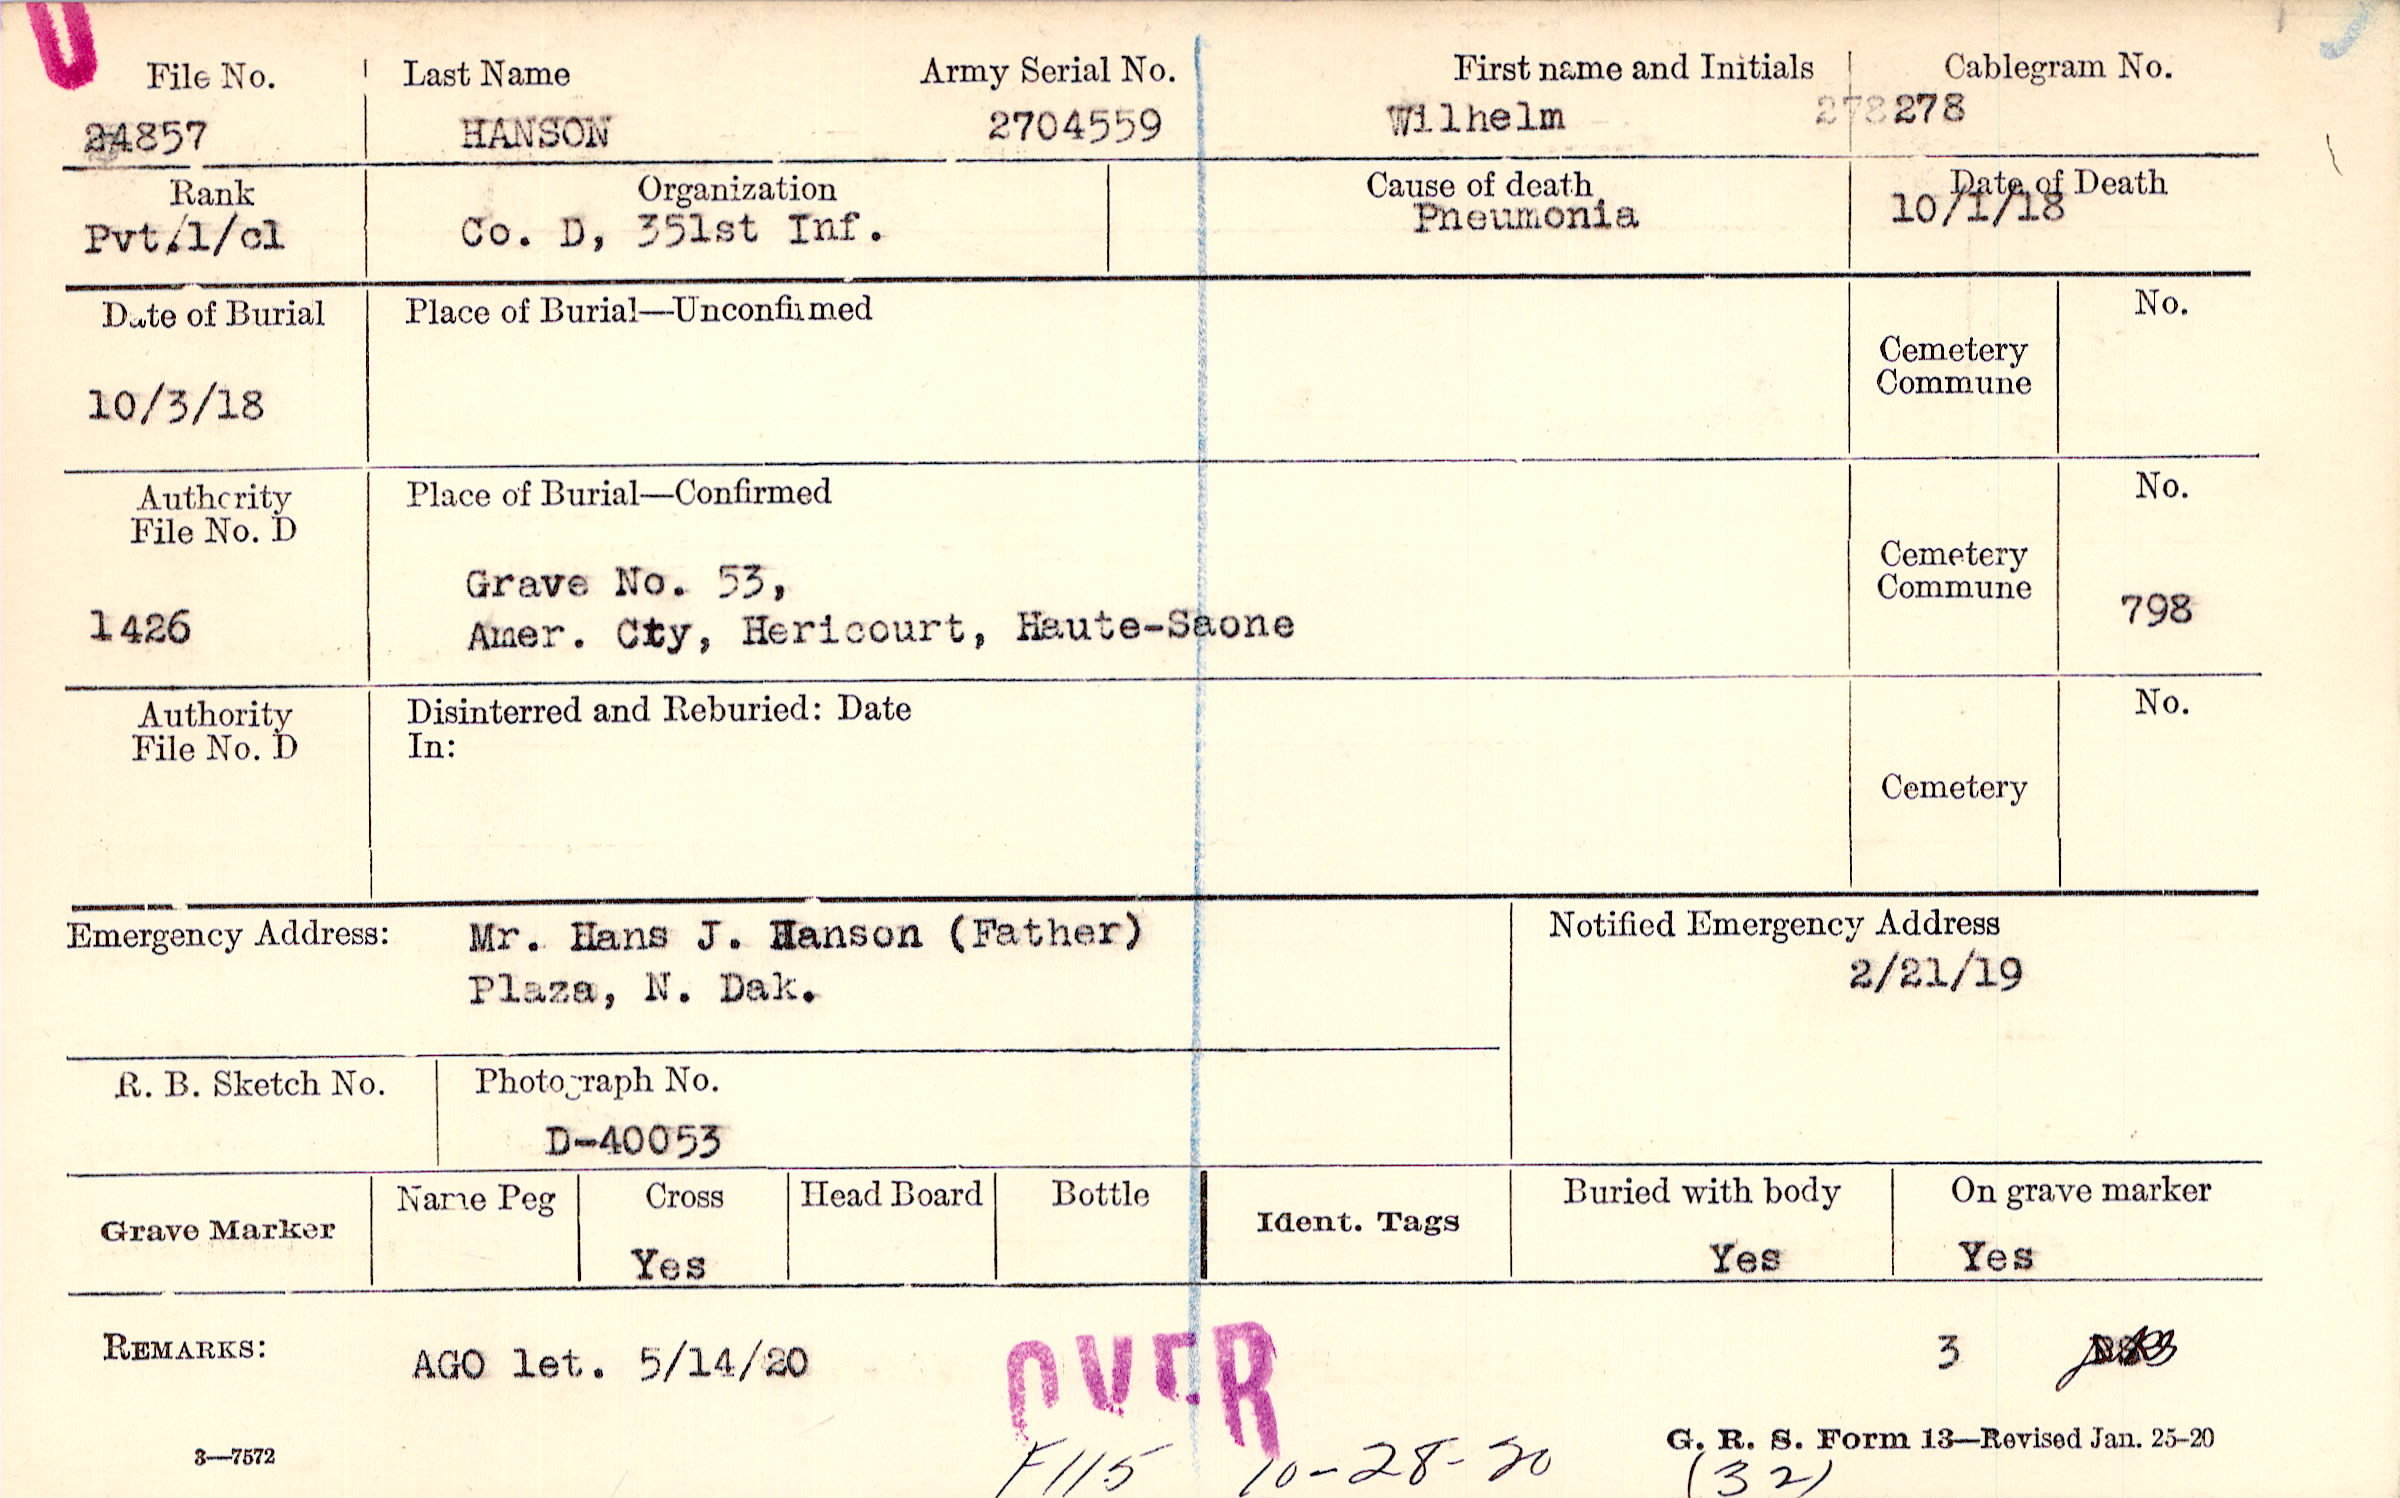 File No. Last Name Army Serial No. First name and Initials Cablegram No.
24857 HANSON 2704559 Wilhelm 278 278
Rank Organization Cause of death Date of Death
Pvt.1/cl Co. D, 351st Inf. Pneumonia 10/1/18
Date of Burial Place of Burial—Unconfirmed No.
Cemetery
Commune
10/3/18
Authority Place of Burial—Confirmed No.
File No. D
Cemetery
Commune
Grave No. 53,
1426 Amer. Cty, Hericourt, Haute-Saone 798
Authority Disinterred and Reburied: Date No.
File No. D In:
Cemetery
Emergency Address: Mr. Hans J. Hanson (Father) Notified Emergency Address
Plaza, N. Dak. 2/21/19
R. B. Sketch No. Photograph No.
D-40053
Grave Marker Name Peg Cross Head Board Bottle Ident. Tags Buried with body On grave marker
Yes Yes Yes
REMARKS: AGO let. 5/14/20 OVER 3
3—7572 G. R. S. Form 13—Revised Jan. 25-20
F115 10-28-20 (32)